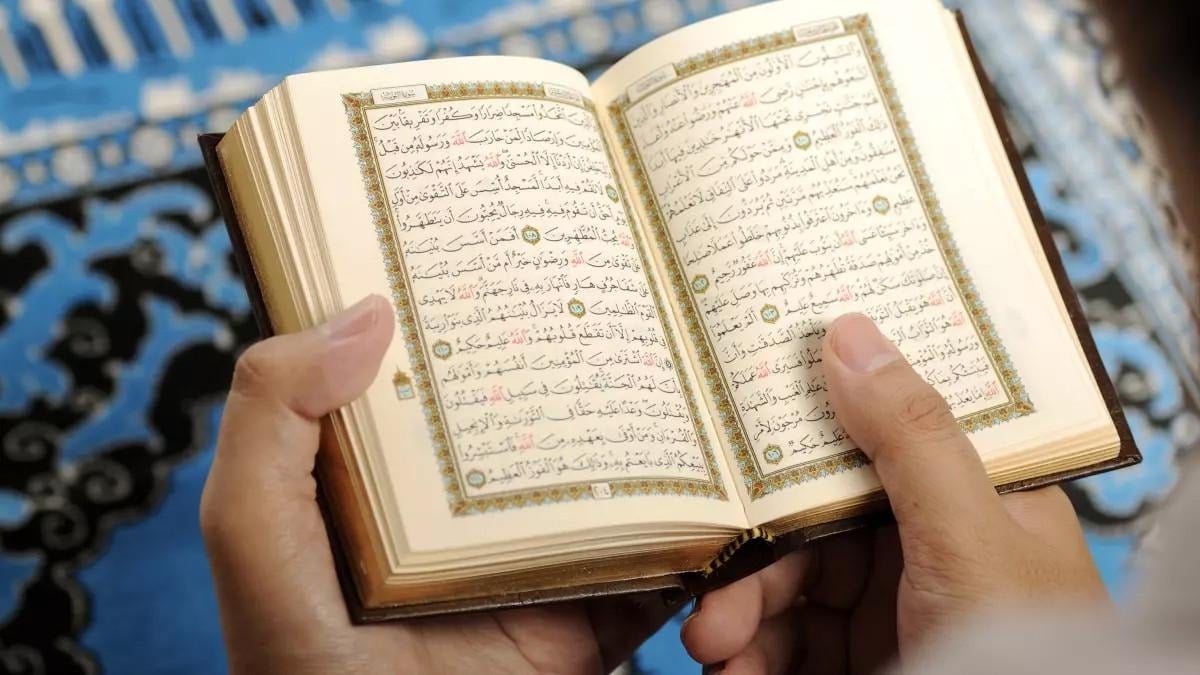 وَالسَّٰبِقُونَ الْأَوَّلُونَ مِنَ الْمُهَٰجِرِينَ وَالْأَنصَارِ وَالَّذِينَ
اتَّبَعُوهُم بِإِحْسَٰنٍ رَّضِيَ اللَّهُ عَنْهُمْ وَرَضُوا عَنْهُ وَأَعَدَّ
لَهُمْ جَنَّٰتٍ تَجْرِي تَحْتَهَا الْأَنْهَٰرُ خَٰلِدِينَ فِيهَا أَبَدًا
ذَٰلِكَ الْفَوْزُ الْعَظِيمُ ١٠٠ وَمِمَّنْ حَوْلَكُم مِّنَ الْأَعْرَابِ
مُنَٰفِقُونَ وَمِنْ أَهْلِ الْمَدِينَةِ مَرَدُوا عَلَى النِّفَاقِ لَا تَعْلَمُهُمْ
نَحْنُ نَعْلَمُهُمْ سَنُعَذِّبُهُم مَّرَّتَيْنِ ثُمَّ يُرَدُّونَ إِلَىٰ عَذَابٍ
عَظِيمٍ ١٠١ وَءَاخَرُونَ اعْتَرَفُوا بِذُنُوبِهِمْ خَلَطُوا عَمَلًا صَٰلِحًا
وَءَاخَرَ سَيِّئًا عَسَى اللَّهُ أَن يَتُوبَ عَلَيْهِمْ إِنَّ اللَّهَ غَفُورٌ رَّحِيمٌ ١٠٢
مِنْ أَمْوَٰلِهِمْ صَدَقَةً تُطَهِّرُهُمْ وَتُزَكِّيهِم بِهَا وَصَلِّ عَلَيْهِمْ
إِنَّ صَلَوٰتَكَ سَكَنٌ لَّهُمْ وَاللَّهُ سَمِيعٌ عَلِيمٌ ١٠٣ أَلَمْ يَعْلَمُوا
أَنَّ اللَّهَ هُوَ يَقْبَلُ وَيَأْخُذُ الصَّدَقَٰتِ وَأَنَّ
اللَّهَ هُوَ التَّوَّابُ اعْمَلُوا فَسَيَرَى اللَّهُ عَمَلَكُمْ
وَرَسُولُهُ وَالْمُؤْمِنُونَ عَٰلِمِ الْغَيْبِ وَالشَّهَٰدَةِ
فَيُنَبِّئُكُم بِمَا مُرْجَوْنَ لِأَمْرِ
اللَّهِ إِمَّا يُعَذِّبُهُمْ عَلِيمٌ حَكِيمٌ ١٠٦
سُورَةُ التَّوْبَةِ
اتَّخَذُوا مَسْجِدًا ضِرَارًا وَكُفْرًا وَتَفْرِيقًا بَيْنَ
الْمُؤْمِنِينَ وَإِرْصَادًا لِّمَنْ حَارَبَ اللَّهَ وَرَسُولَهُ مِن قَبْلُ
وَلَيَحْلِفُنَّ إِنْ أَرَدْنَا إِلَّا الْحُسْنَىٰ وَاللَّهُ يَشْهَدُ إِنَّهُمْ لَكَٰذِبُونَ ١٠٧
لَا تَقُمْ فِيهِ أَبَدًا لَّمَسْجِدٌ أُسِّسَ عَلَى التَّقْوَىٰ مِنْ أَوَّلِ
يَوْمٍ أَحَقُّ أَن تَقُومَ فِيهِ فِيهِ رِجَالٌ يُحِبُّونَ أَن يَتَطَهَّرُوا
وَاللَّهُ يُحِبُّ الْمُطَّهِّرِينَ ١٠٨ أَفَمَنْ أَسَّسَ بُنْيَٰنَهُ
عَلَىٰ تَقْوَىٰ مِنَ اللَّهِ وَرِضْوَٰنٍ خَيْرٌ أَم مَّنْ أَسَّسَ بُنْيَٰنَهُ
عَلَىٰ شَفَا جُرُفٍ هَارٍ فَانْهَارَ بِهِ فِي نَارِ جَهَنَّمَ وَاللَّهُ لَا يَهْدِي
الْقَوْمَ الظَّٰلِمِينَ ١٠٩ لَا يَزَالُ بُنْيَٰنُهُمُ الَّذِي بَنَوْا رِيبَةً
فِي قُلُوبِهِمْ إِلَّا أَن تَقَطَّعَ قُلُوبُهُمْ وَاللَّهُ عَلِيمٌ حَكِيمٌ ١١٠
إِنَّ اللَّهَ اشْتَرَىٰ مِنَ الْمُؤْمِنِينَ أَنفُسَهُمْ وَأَمْوَٰلَهُم
بِأَنَّ لَهُمُ الْجَنَّةَ يُقَٰتِلُونَ فِي سَبِيلِ اللَّهِ فَيَقْتُلُونَ
وَيُقْتَلُونَ وَعْدًا عَلَيْهِ حَقًّا فِي التَّوْرَىٰةِ وَالْإِنجِيلِ
وَالْقُرْءَانِ وَمَنْ أَوْفَىٰ بِعَهْدِهِ مِنَ اللَّهِ فَاسْتَبْشِرُوا
بِبَيْعِكُمُ الَّذِي بَايَعْتُم بِهِ وَذَٰلِكَ هُوَ الْفَوْزُ الْعَظِيمُ ١١١
٢٠٤